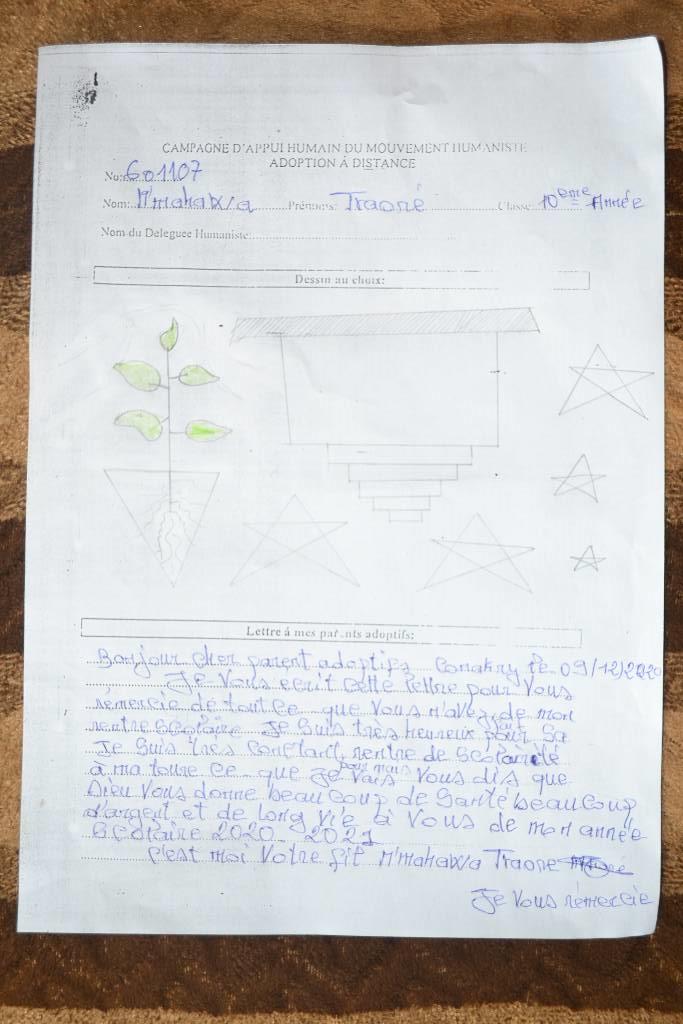 CAMPAGNE D'APPUI HUMAIN DU MOUVEMENT HUMANISTE
ADOPTION À DISTANCE
No: 601107
Nom: M'mahawa Prénoms: Traoré Classe: 10eme Année
Nom du Deleguee Humaniste:
Dessin au choix:
Lettre á mes parents adoptifs:
Bonjour cher parent adoptifs Conakry le 09/12/2020
Je Vous ecrit cette lettre pour Vous
rémercie de tout ce que Vous m'avez de mon
rentre scolaire Je Suis très heureux pour Sa
Je Suis tres Contant rentre de Scolarité
à ma toure ce que Je pour mais Vous dis que
Dieu Vous donne beauCoup de Santé beauCoup
d'argent et de long vie à Vous de mon année
Scolaire 2020 2021
c'est moi Votre fit M'mahawa Traore
Je Vous rémercie